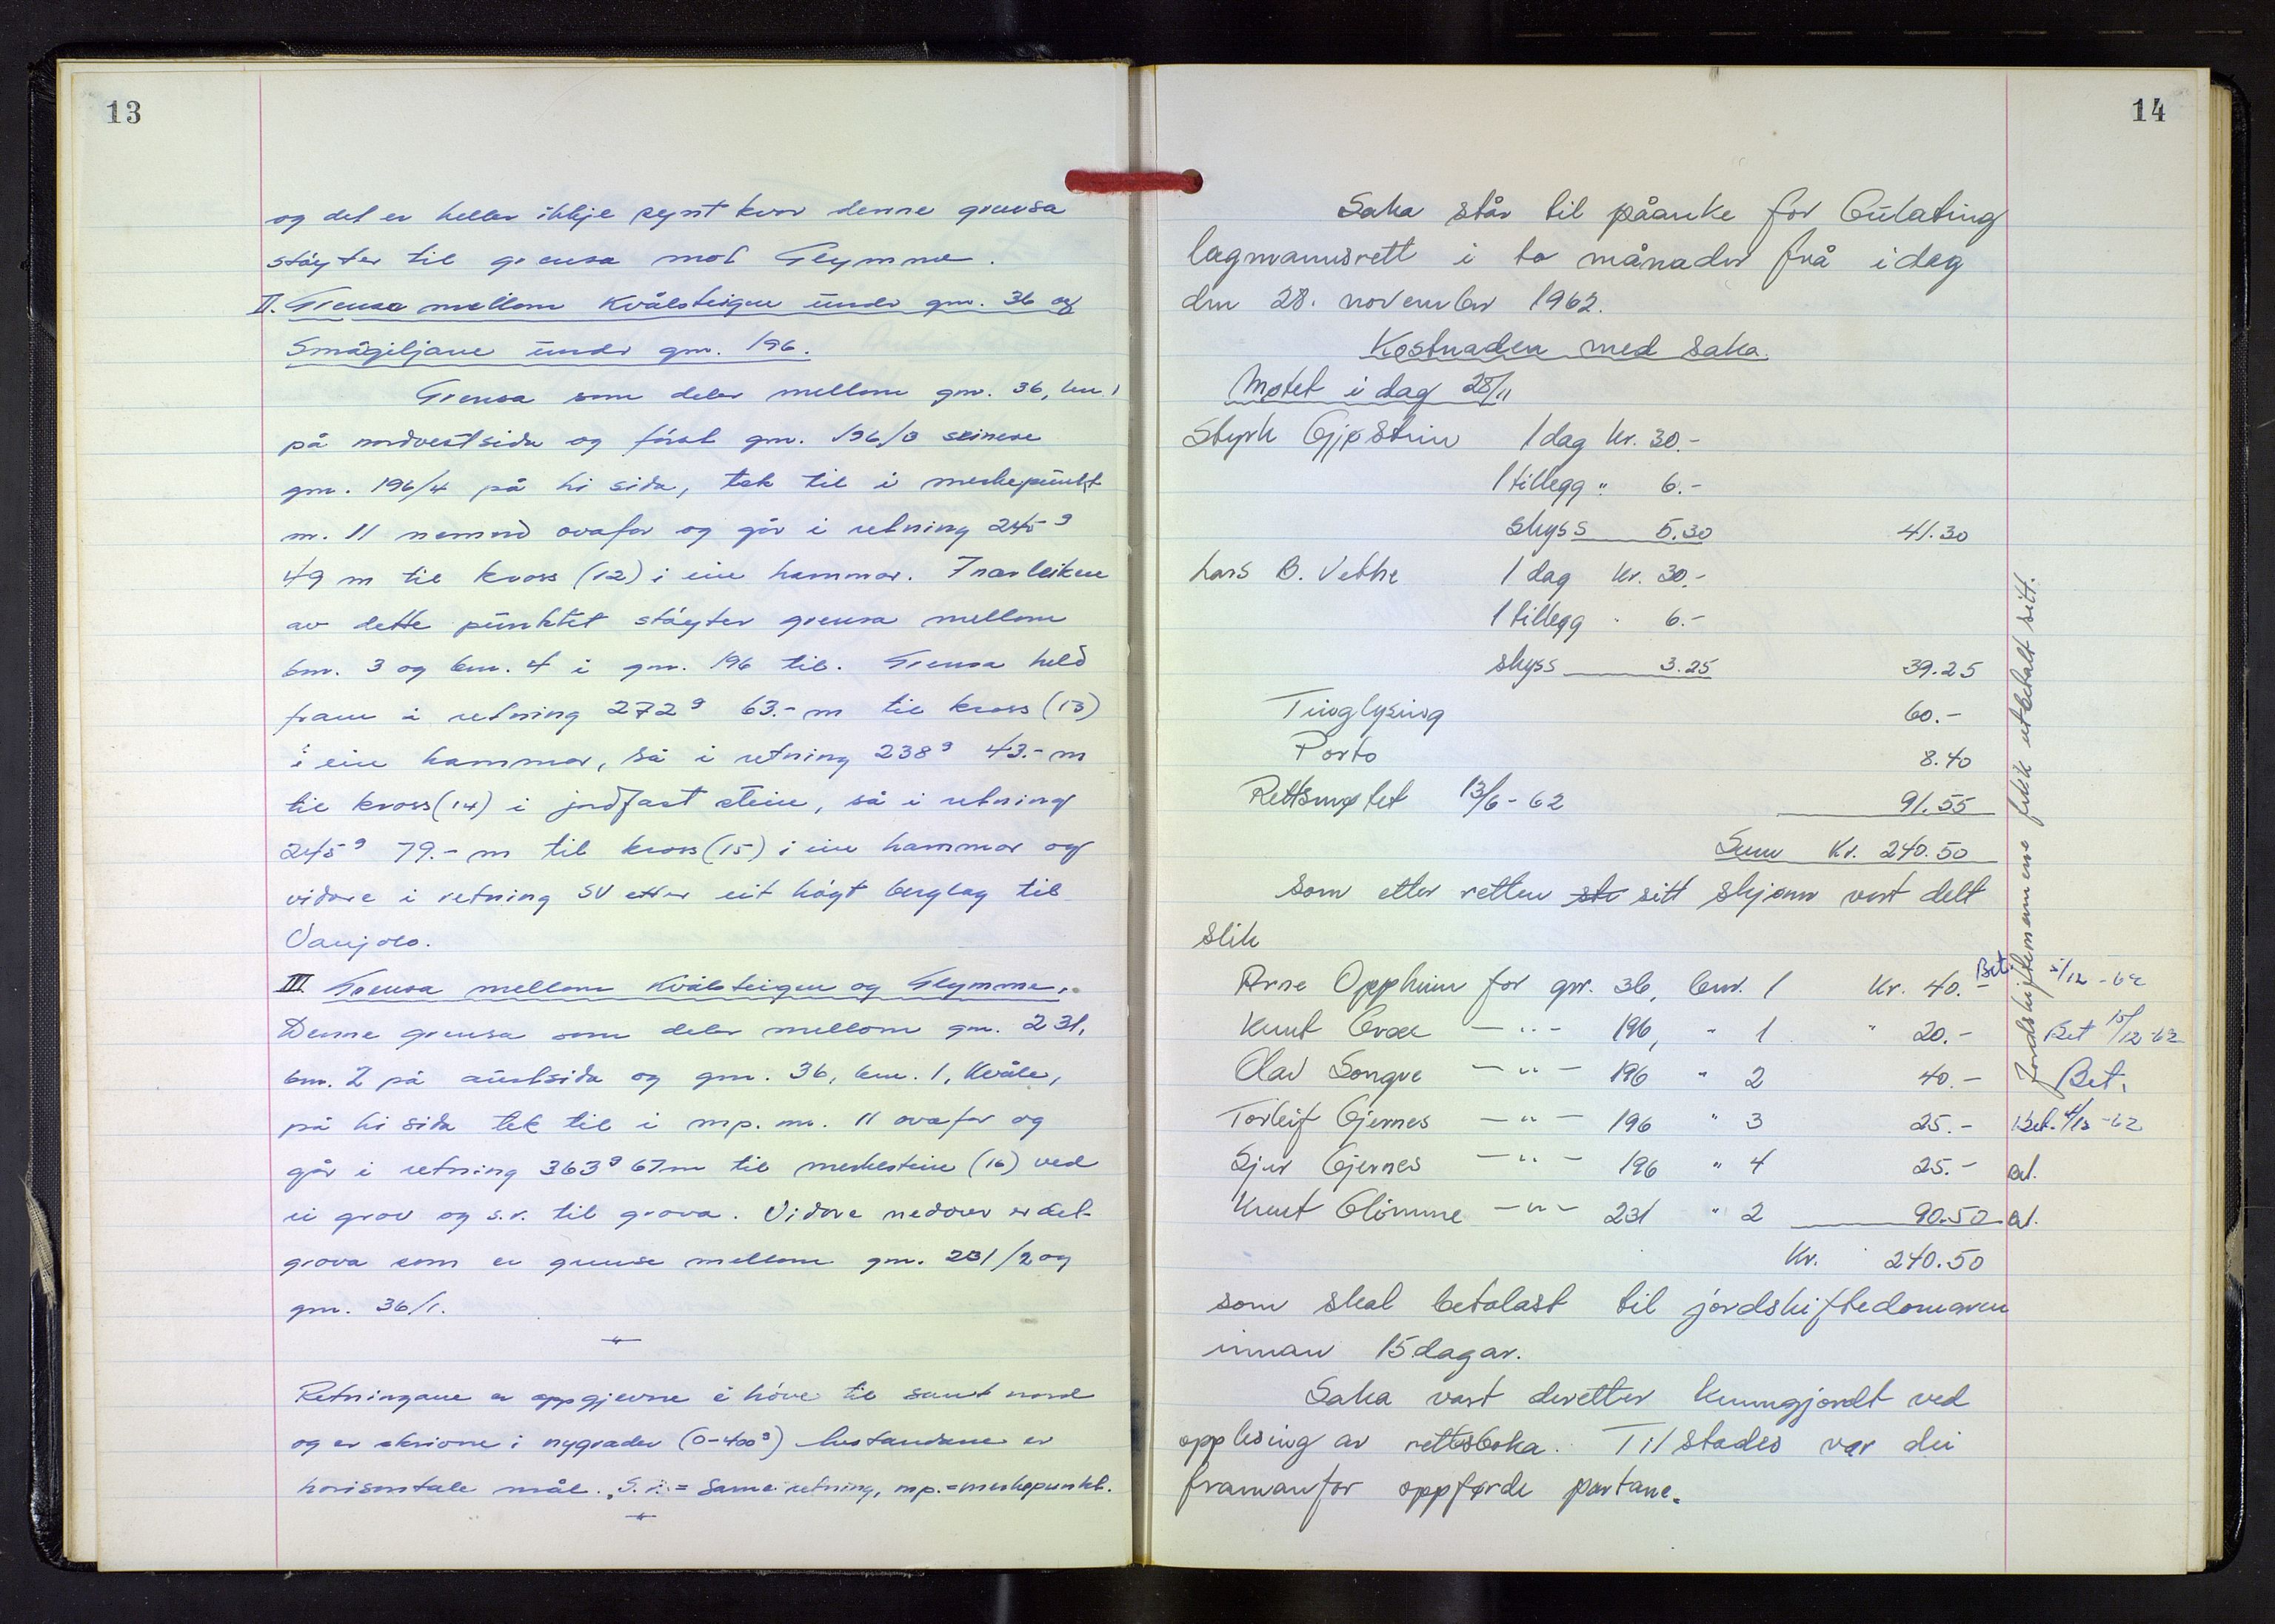 13
og det er heller ikkje synt kvar denne grensa
støyter til grensa mot Glymme.
II. Grensa mellom Kvålsteigen under gnr. 36 og
Smågiljane under gnr. 196.
Grensa som deler mellom gnr. 36, bnr. 1
på nordvestsida og først gnr. 196/3 seinere
gnr. 196/4 på hi sida, tek til i merkepunkt
nr. 11 nemnd ovafor og går i retning 245 g
49 m til kross (12) i ein hammar. I nærleiken
av dette punktet støyter grensa mellom
bnr. 3 og bnr. 4 i gnr. 196 til. Grensa held
fram i retning 272 g 63.- m til kross (13)
i ein hammar, så i retning 238 g 43.- m
til kross (14) i jordfast stein, så i retning
245 g 79.- m til kross (15) i ein hammar og
vidare i retning SV etter eit høgt berglag til
III Grensa mellom Kvålsteigen og Glymme.
Denne grensa som deler mellom gnr. 231,
bnr. 2 på austsida og gnr. 36, bnr. 1, Kvåle,
på hi sida tek til i mp. nr. 11 ovafor og
går i retning 363 g 67 m til merkestein (16) ved
ei grov og s.r. til grova. Vidare nedover er det
grova som er grense mellom gnr. 231/2 og
gnr. 36/1.
Retningane er oppgjevne i høve til sant nord
og er skrivne i nygrader (0-400 g) Avstandane er
horisontale mål. S.r. = Same retning, mp. = merkepunkt.
14
Saka står til påanke for Gulating
lagmannsrett i to månader frå i dag
den 28. november 1962.
Kostnaden med saka.
Møtet i dag 28/11
Styrk Gjøstein 1 dag kr. 30.-
1 tillegg " 6.-
skyss 5.30 41.30
Lars B. Vethe 1 dag kr. 30.-
1 tillegg " 6.-
skyss 3.25 39.25
Tinglysing 60.-
Porto 8.40
Rettsmøtet 13/6-62 91.55
Sum kr. 240.50
som etter retten sitt skjønn vart delt
slik
Arne Oppheim for gnr. 36, bnr. 1 Kr. 40.- Bet. 5/12-62
Knut -"- 196, " 1 " 20.- Bet 15/12-62
Olav Songve -"- 196 " 2 40.- Bet.
Torleif Gjernes -"- 196 " 3 25.- Bet. 4/12-62
Sjur Gjernes -"- 196 " 4 25.-
Knut Glömme -"- 231 " 2 90.50
Kr. 240.50
som skal betalast til jordskiftedomaren
innan 15 dagar.
Saka vart deretter kunngjordt ved
opplesing av rettsboka. Tilstades var dei
framanfor oppførde partane.
Jordskiftemennene fekk utbetalt sitt.